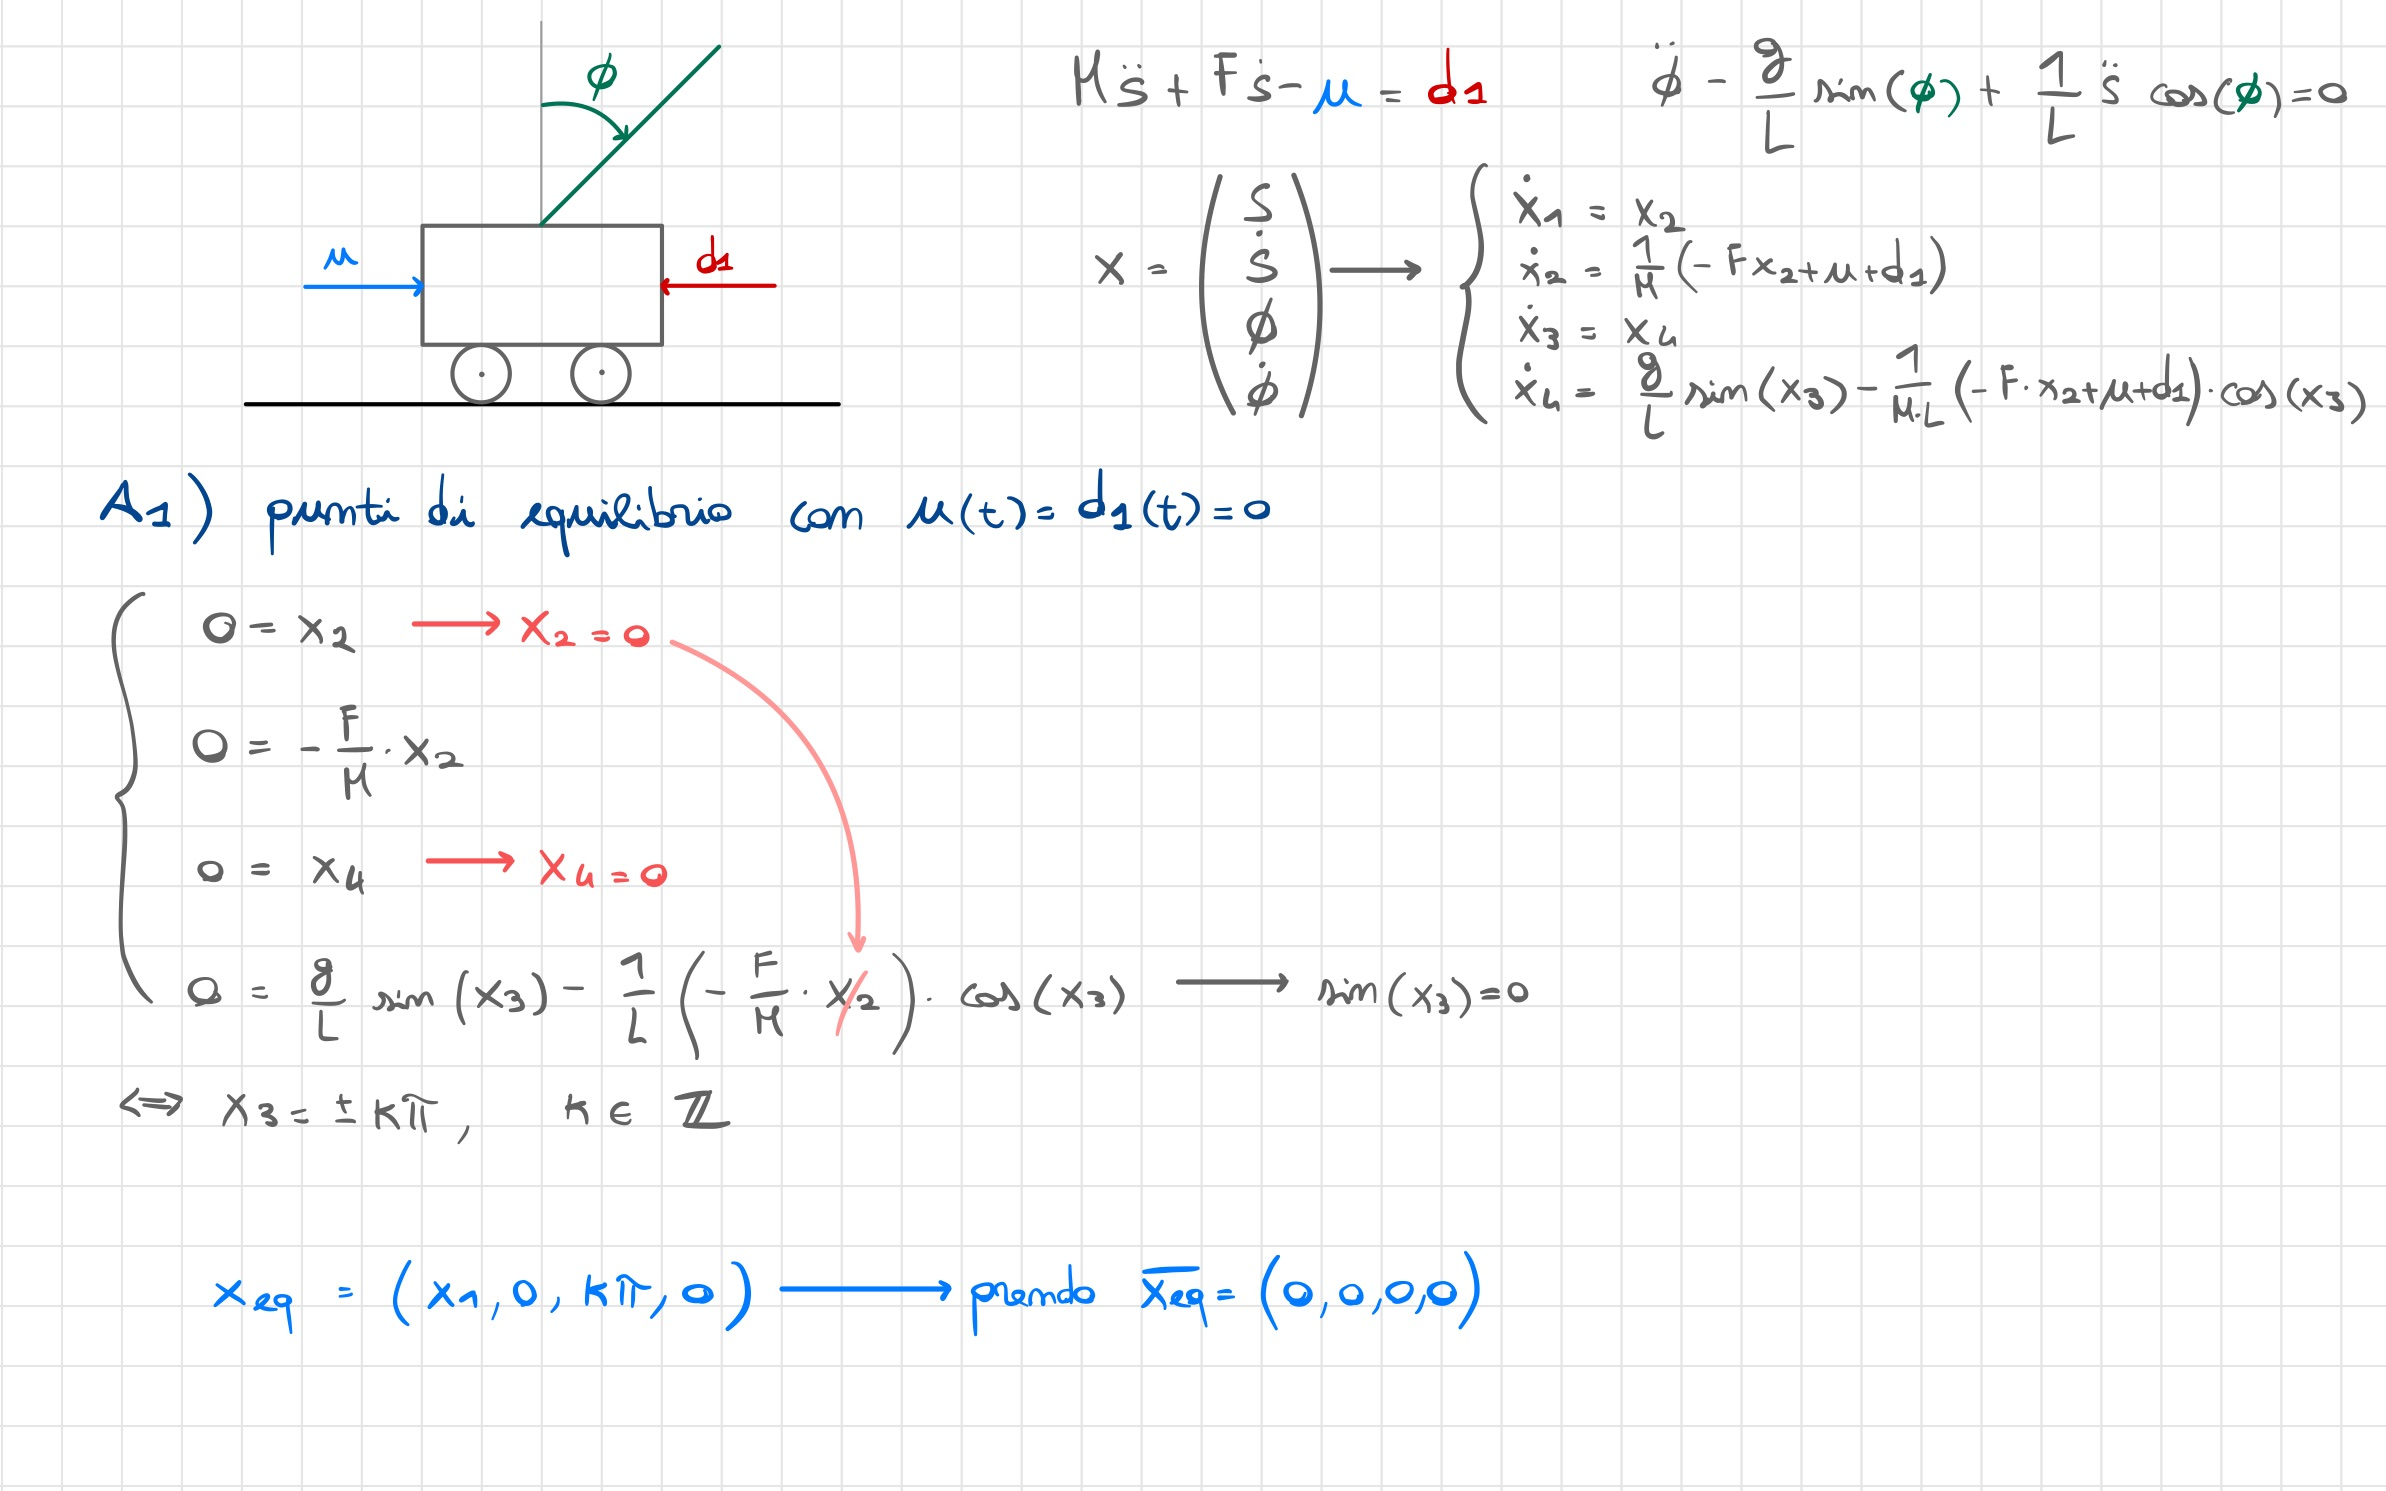 ϕ
u
d1
Ms̈ + Fṡ - u = d1
ϕ̈ - g/L sin(ϕ) + 1/L s̈ cos(ϕ) = 0
x = (s ṡ ϕ ϕ̇) →
ẋ1 = x2
ẋ2 = 1/M (-Fx2 + u + d1)
ẋ3 = x4
ẋ4 = g/L sin(x3) - 1/(M·L) (-F·x2 + u + d1)·cos(x3)
A1) punti di equilibrio con u(t) = d1(t) = 0
0 = x2 → x2 = 0
0 = - F/M · x2
0 = x4 → x4 = 0
0 = g/L sin(x3) - 1/L (- F/M · x2) · cos(x3) → sin(x3) = 0
⟺ x3 = ± kπ, k ∈ ℤ
xeq = (x1, 0, kπ, 0) → prendo x̅e̅q̅ = (0, 0, 0, 0)